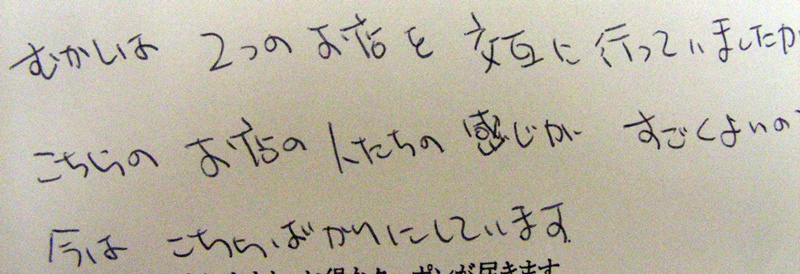 むかしは 2つのお店を交互に行っていましたが
こちらの お店の人たちの感じが すごくよいので
今は こちらばかりにしています